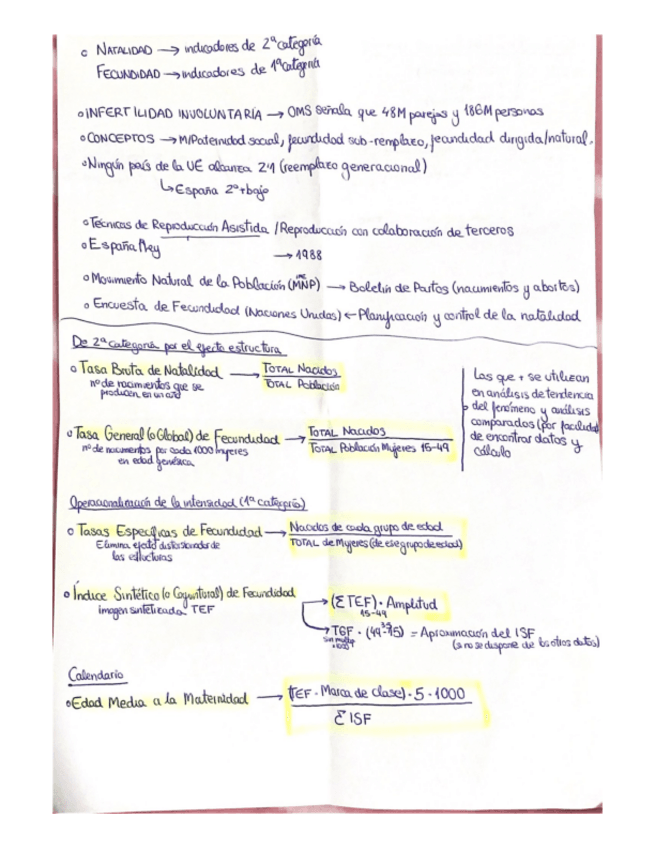 o NATALIDAD → indicadores de 2ª categoría
FECUNDIDAD → indicadores de 1ª categoría
o INFERTILIDAD INVOLUNTARIA → OMS señala que 48M parejas y 186M personas
o CONCEPTOS → M/Paternidad social, fecundidad sub-remplazo, fecundidad dirigida/natural.
o Ningún país de la UE alcanza 2'1 (reemplazo generacional)
↳ España 2º + bajo
o Técnicas de Reproducción Asistida / Reproducción con colaboración de terceros
o España ley → 1988
o Movimiento Natural de la Población (MNP) → Boletín de Partos (nacimientos y abortos)
INE
o Encuesta de Fecundidad (Naciones Unidas) ← Planificación y control de la natalidad
De 2ª categoría por el efecto estructura
o Tasa Bruta de Natalidad → TOTAL Nacidos
TOTAL Población
nº de nacimientos que se
producen en un año
Las que + se utilizan
en análisis de tendencia
del fenómeno y análisis
comparados (por facilidad
de encontrar datos y
cálculo
o Tasa General (o Global) de Fecundidad → TOTAL Nacidos
TOTAL Población Mujeres 15-49
nº de nacimientos por cada 1000 mujeres
en edad genésica
Operacionalización de la intensidad (1ª categoría)
o Tasas Específicas de Fecundidad → Nacidos de cada grupo de edad
TOTAL de Mujeres (de ese grupo de edad)
Elimina efecto distorsionador de
las estructuras
o Índice Sintético (o Coyuntural) de Fecundidad
imagen sintetizada TEF
→ (Σ TEF) · Amplitud
15-49
→ TGF · (49-15) = Aproximación del ISF
35
sin multip
·1000
(si no se dispone de los otros datos)
Calendario
o Edad Media a la Maternidad → (TEF · Marca de clase) · 5 · 1000
Σ ISF